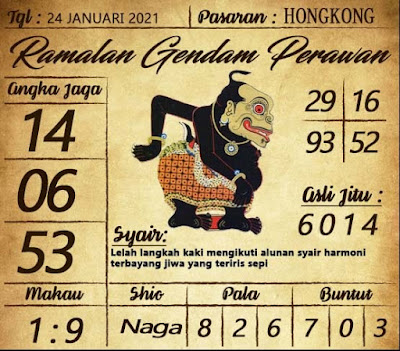 Tgl : 24 JANUARI 2021
Pasaran : HONGKONG
Ramalan Gendam Perawan
Angka Jaga
14
06
53
29 16
93 52
Asli Jitu :
6014
Syair:
Lelah langkah kaki mengikuti alunan syair harmoni
terbayang jiwa yang teriris sepi
Makau
1 : 9
Shio
Naga
Pala
8 2 6
Buntut
7 0 3